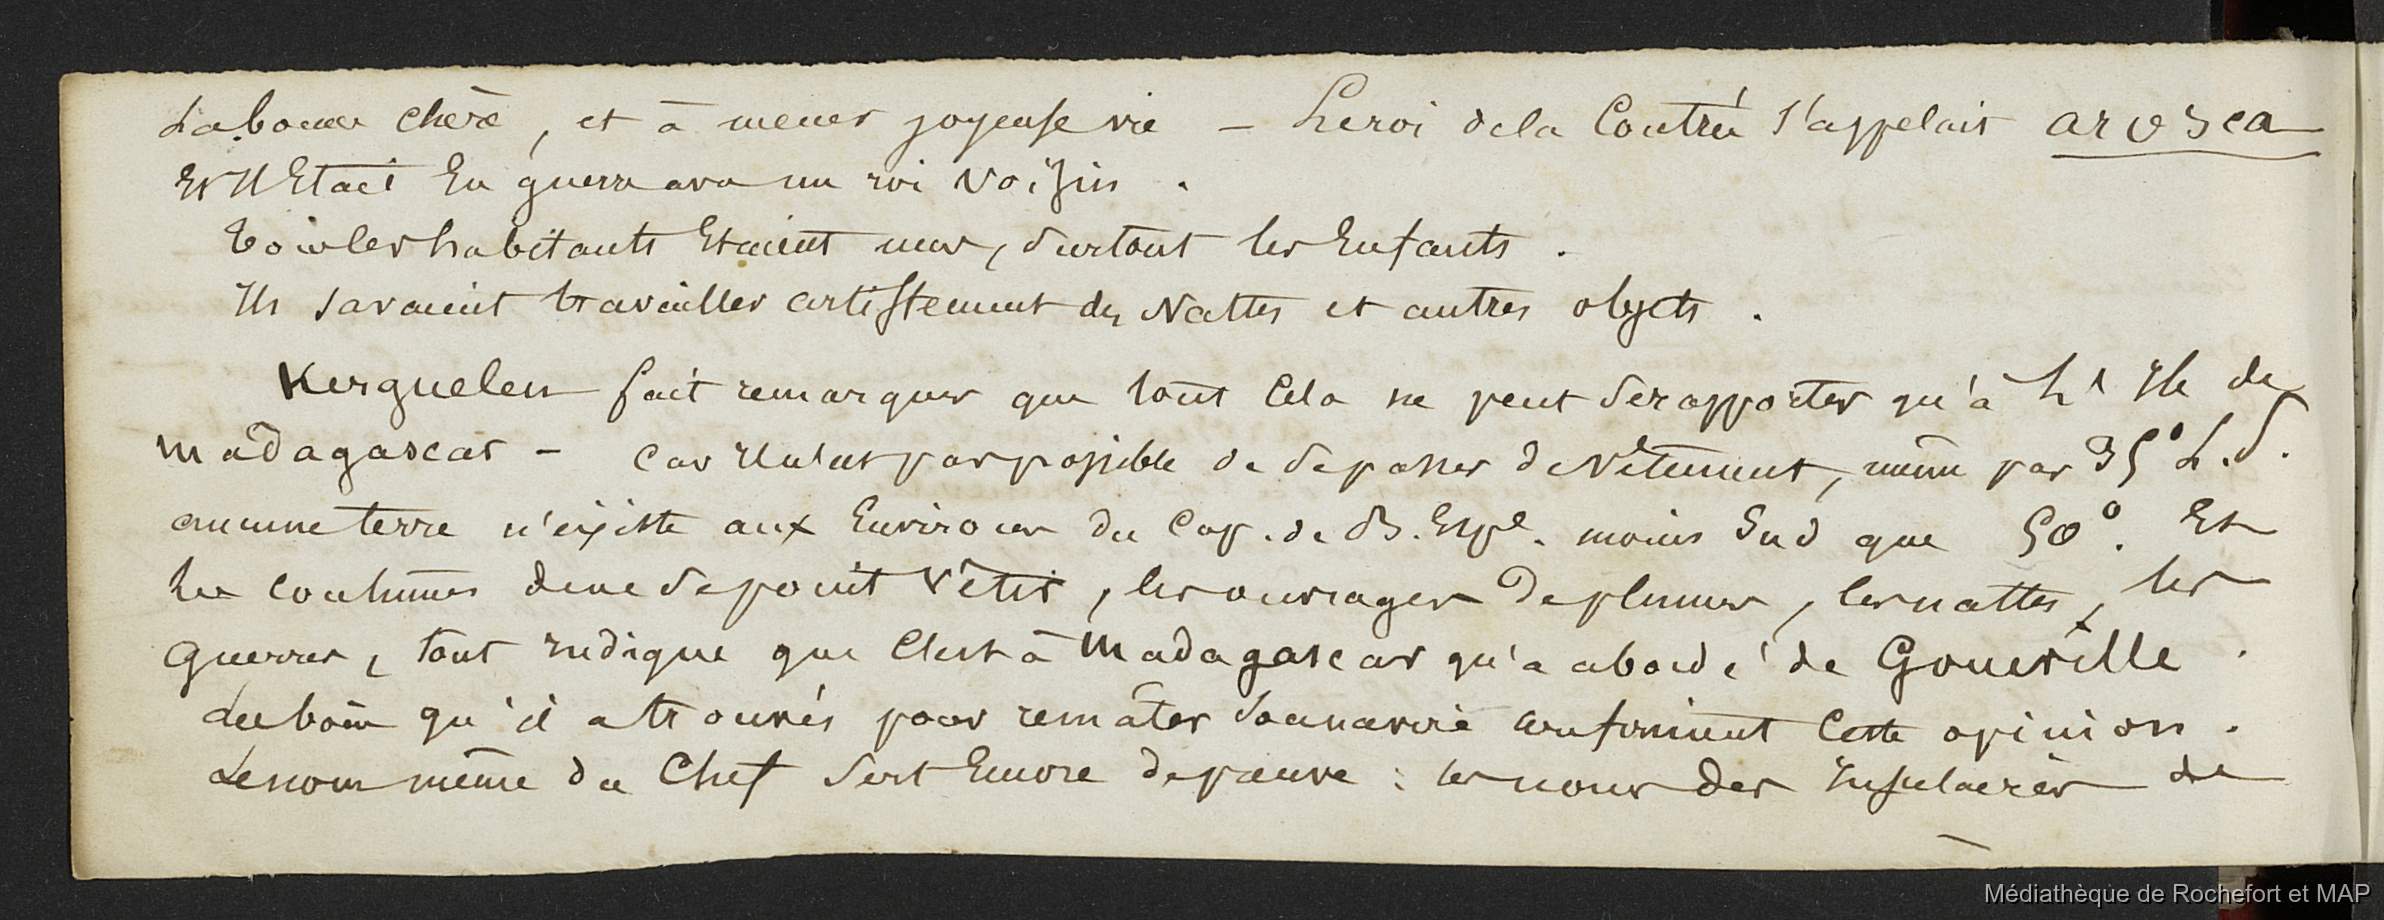 La bonne chère, et à mener joyeuse vie – Le roi de la Contrée s'appelait arosca
Et Il Etait En guerre avec un roi Voisin.
Tous les habitants Etaient nus, surtout les Enfants.
Ils savaient travailler artistement des Nattes et autres objets.
Kerguelen fait remarquer que tout Cela ne peut se rapporter qu'à L'Ile de
Madagascar – Car Il n'est pas possible de se passer de Vêtement, même par 35° L.S.
aucune terre n'existe aux Environs du Cap. de B. Espe. moins Sud que 50°. Et
les coutumes de ne se point Vêtir, les ouvrages de plumes, les nattes, les
Guerres, tout Indique que C'est à Madagascar qu'a abordé de Goneville.
Les bois qu'il a trouvés pour remâter son navire confirment Cette opinion.
Le nom même du Chef sert Encore de preuve : les noms des Insulaires de
Médiathèque de Rochefort et MAP